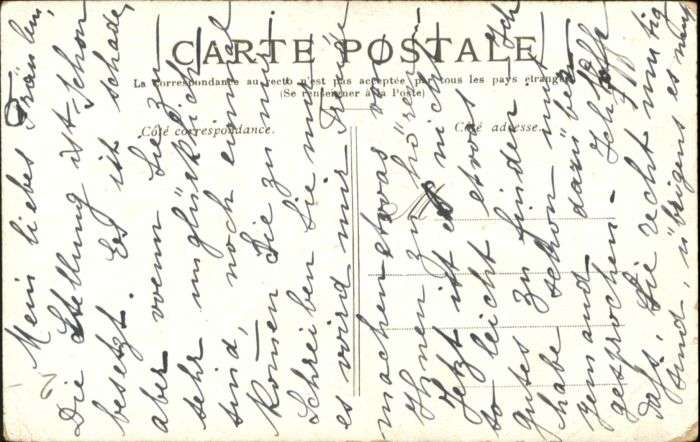 CARTE POSTALE
La correspondance au recto n'est pas acceptée par tous les pays étrangers
(Se renseigner à la Poste)
Côté correspondance.
Côté adresse.
Mein liebes Fräulein,
Die Stellung ist schon
besetzt. Es ist schade,
aber wenn Sie zu
sehr unglücklich
sind, noch einmal
komen Sie zu mir.
Schreiben Sie mir
es würd mir Freude
machen etwas von
Ihnen zu hören.
Jetzt ist es nicht
so leicht etwas
gutes zu finden. Ich
habe schon mit
jemand darüber
gesprochen. Ich hoffe
daß Sie recht mutig
sind, übrigens es muß